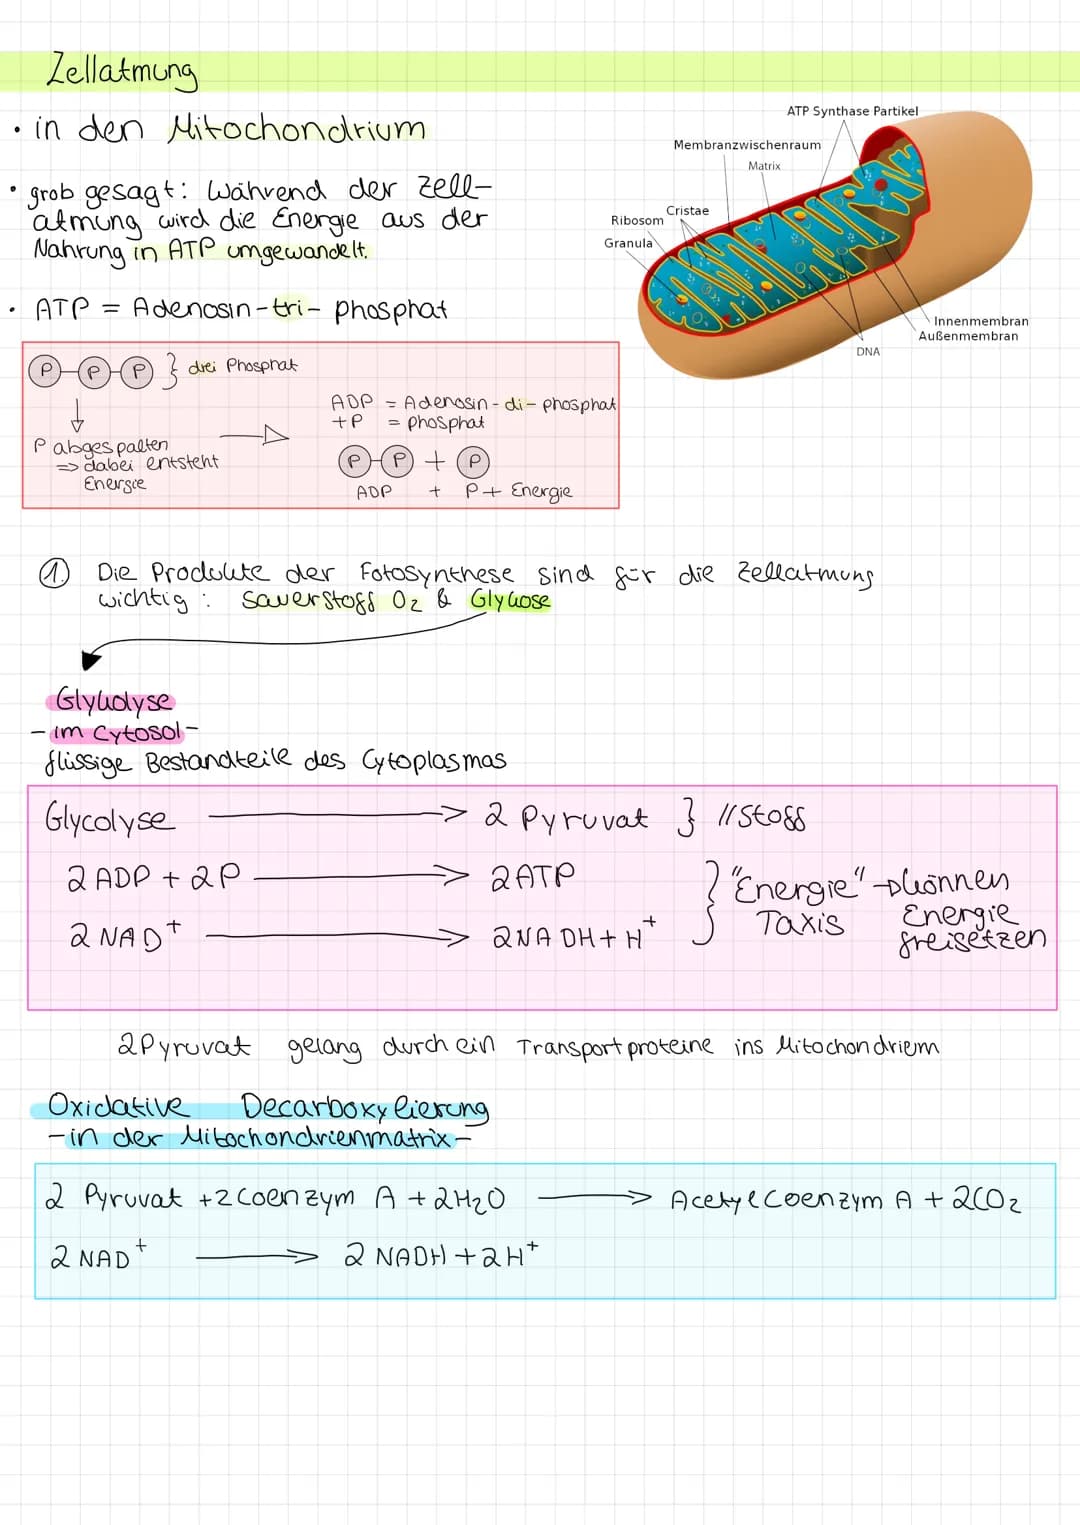 Zellatmung
• in den Mitochondrium
• grob gesagt: Während der Zell-
atmung wird die Energie aus der
Nahrung in ATP umgewandelt.
• ATP = Adenosin-tri- phosphat
ATP Synthase Partikel
Membranzwischenraum
Matrix
Cristae
Ribosom
Granula
Innenmembran
Außenmembran
DNA
P-P-P } drei Phosphat
P abgespalten
=> dabei entsteht
Energie
ADP = Adenosin-di-phosphat
+P = phosphat
P-P + P
ADP + P+ Energie
1. Die Produkte der Fotosynthese sind für die Zellatmung
wichtig: Sauerstoff O₂ & Glykose
Glykolyse
- im Cytosol -
flüssige Bestandteile des Cytoplasmas
Glycolyse → 2 Pyruvat } //Stoff
2 ADP + 2P → 2 ATP
2 NAD⁺ → 2 NADH + H⁺
} "Energie" → können
Taxis Energie
freisetzen
2 Pyruvat gelang durch ein Transportproteine ins Mitochondriem
Oxidative Decarboxylierung
- in der Mitochondrienmatrix -
2 Pyruvat + 2 Coenzym A + 2H₂O → Acetyl Coenzym A + 2CO₂
2 NAD⁺ → 2 NADH + 2H⁺